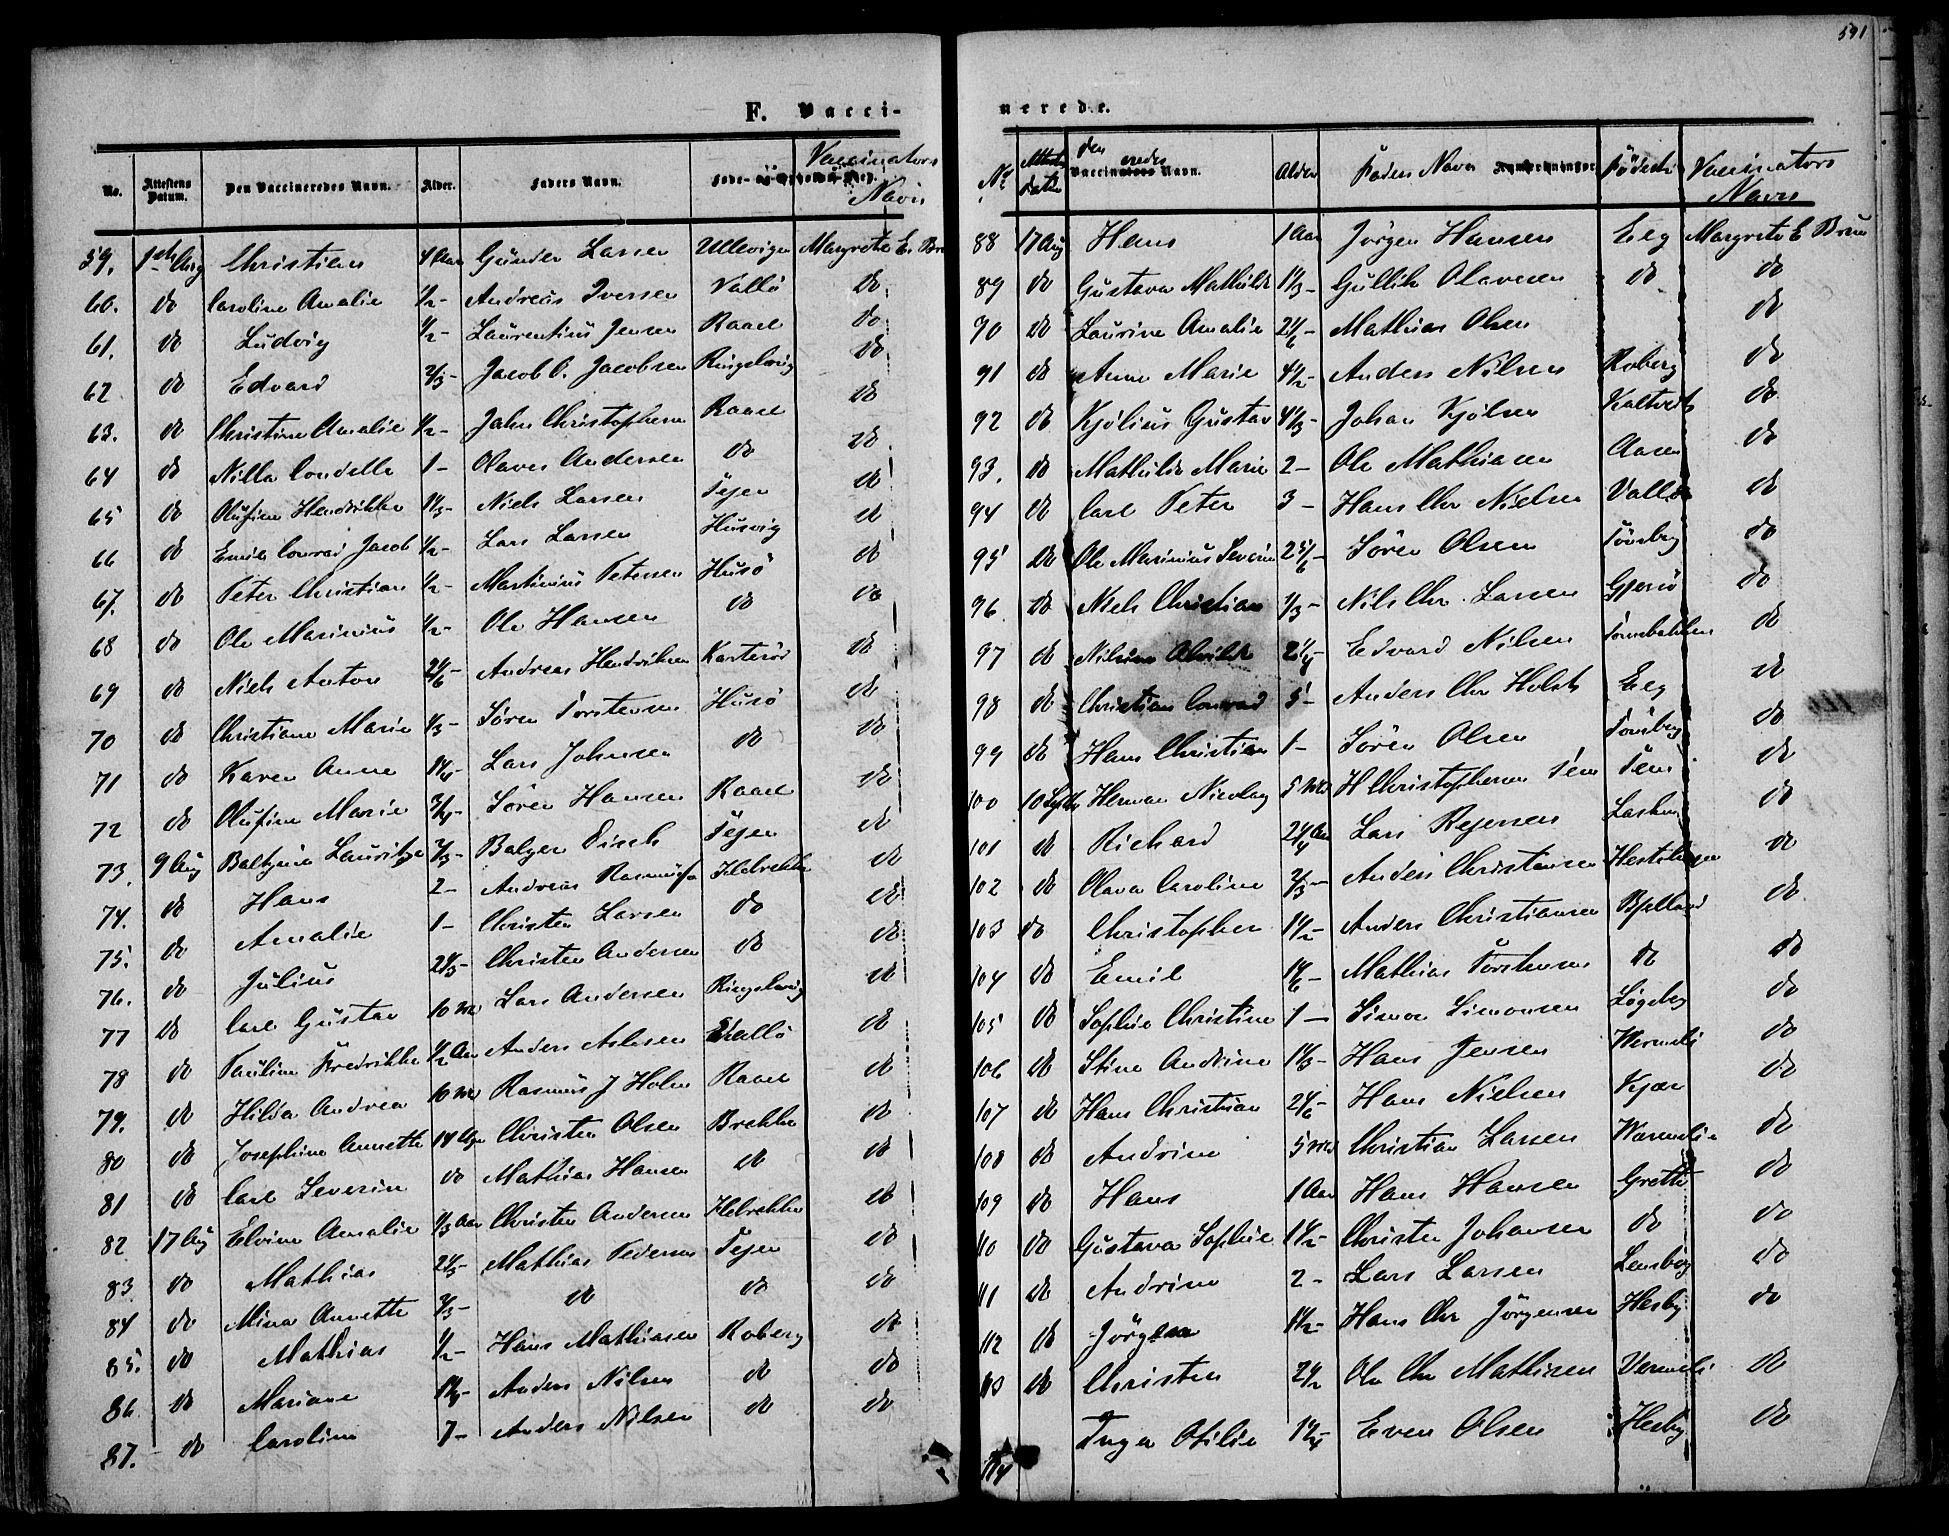 591
F. Vacci-
No. Attestens Datum. Den Vaccineredes Navn. Alder. Faders Navn. Føde- og Opholds-Sted. Vaccinators Navn
59. 1ste Aug Christian 4 Aar Gunder Larsen Ullevigen Margrete E. Bru
60. do Caroline Amalie 1/2 - Andreas Iversen Vallö do
61. do Ludvig 1/2 - Laurentius Jensen Raael do
62 do Edvard 2/3 - Jacob C. Jacobsen Ringshoug do
63. do Christine Amalie 1/2 - John Christophersen Raael do
64 do Nilla Condelle 1 - Olaves Andersen do do
65 do Olufine Hendrikke 1 1/3 - Niels Larsen Tejen do
66 do Emil Conrad Jacob 1/2 - Lars Larsen Husvig do
67. do Peter Christian 1/2 - Martinius Petersen Husö do
68 do Ole Marinius 1/2 - Ole Hansen do do
69 do Niels Anton 2 1/6 - Andreas Hendriksen Karterød do
70 do Christiane Marie 1/3 - Sören Torstensen Husö do
71 do Karen Anne 1 1/6 - Lars Johnsen do do
72 do Olufine Marie 3/4 - Sören Hansen Raael do
73. 9 Aug Baltzine Lauritze 2/3 - Balzer Disch Tejen do
74. do Hans 2 - Andreas Rasmuss Ilebrekke do
75. do Amalie 1 - Christen Larsen do do
76. do Julius 2 1/3 - Christen Andersen do do
77 do Carl Gustav 10 Md Lars Andersen Ringshoug do
78 do Pauline Fredrikke 1/2 Aar Anders Aslesen Vallö do
79. do Hilda Andrea 10 Md Rasmus J Holm Raael do
80 do Josephine Annette 14 Uger Christen Olsen Brekke do
81 do Carl Severin do Mathias Hansen do do
82 17 Aug Elvine Amalie 1/3 Aar Christen Andersen Ilebrekke do
83. do Mathias 2 1/3 - Mathias Pedersen Tejen do
84 do Mina Annette 2/3 - do do do
85. do Mathias 1/2 - Hans Mathiasen Roberg do
86. do Mariane Anders Nilsen do do
87. do Caroline 7 - Anders Nilsen do do
nerede.
No Attest Datum den Vaccineredes Navn. Alder Faders Navn Anmerkninger Födested Vaccinators Navn
88 17 Aug Hans 1 Aar Jörgen Hansen Eeg Margrete E Bruu
89 do Gustava Mathilde 1 1/3 - Gullik Olavesen do do
90 do Laurine Amalie 2 1/6 - Mathias Olsen do
91 do Anne Marie 4 1/2 - Anders Nilsen Roberg do
92 do Kjölius Gustav 4 1/3 - Johan Kjölsen Kaltvedt do
93. do Mathilde Marie 2 - Ole Mathiasen Aasen do
94 do Carl Peter 3 - Hans Chr Nielsen Vallö do
95 do Ole Marinius Severin 2 5/6 - Sören Olsen Tönsberg do
96 do Niels Christian 1/3 - Nils Chr. Larsen Gjersö do
97 do Nilsine Alvilde 2 1/4 - Edvard Nilsen Tømsbakken do
98 do Christian Conrad 5 - Anders Chr Holst Eeg do
99 do Hans Christian 1 - Sören Olsen Tönsberg do
100 10 Septbr Herman Nicolay 5 Md H Christophersen Tem Tem do
101 do Richard 2 1/4 Aar Lars Rejersen Lasken do
102 do Olava Caroline 2/3 - Anders Christensen Hestehagen do
103 do Christopher 1 1/2 - Anders Christiansen Bjelland do
104 do Emil 1 1/6 - Mathias Torstensen do do
105 do Sophie Christine 1 - Simon Simonsen Løgeberg do
106 do Stine Andrine 1 1/3 - Hans Jensen Wermeli do
107 do Hans Christian 2 1/6 - Hans Nielsen Kjær do
108 do Andrine 5 Md Christian Larsen Warmelie do
109 do Hans 1 Aar Hans Hansen Grette do
110 do Gustava Sophie 1 1/2 - Christen Johansen do do
111 do Andrine 2 - Lars Larsen Lensberg do
112 do Jörgen 1 1/2 - Hans Chr Jörgensen Hesby do
113 do Christen 2 1/2 Ole Chr Mathisen Vermeli do
114 Inga Otilie 1 1/4 Even Olsen Hesby do